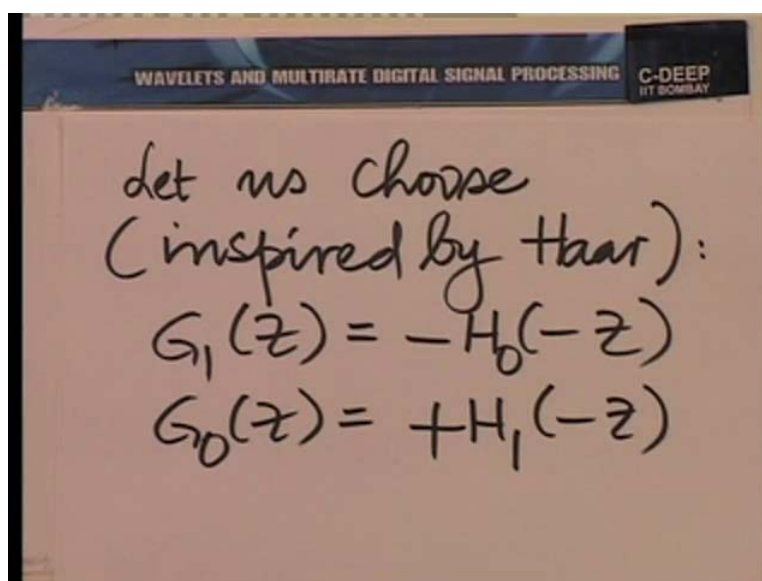 WAVELETS AND MULTIRATE DIGITAL SIGNAL PROCESSING
C-DEEP
IIT BOMBAY
Let us choose
(inspired by Haar):
G₁(Z) = -H₀(-Z)
G₀(Z) = +H₁(-Z)